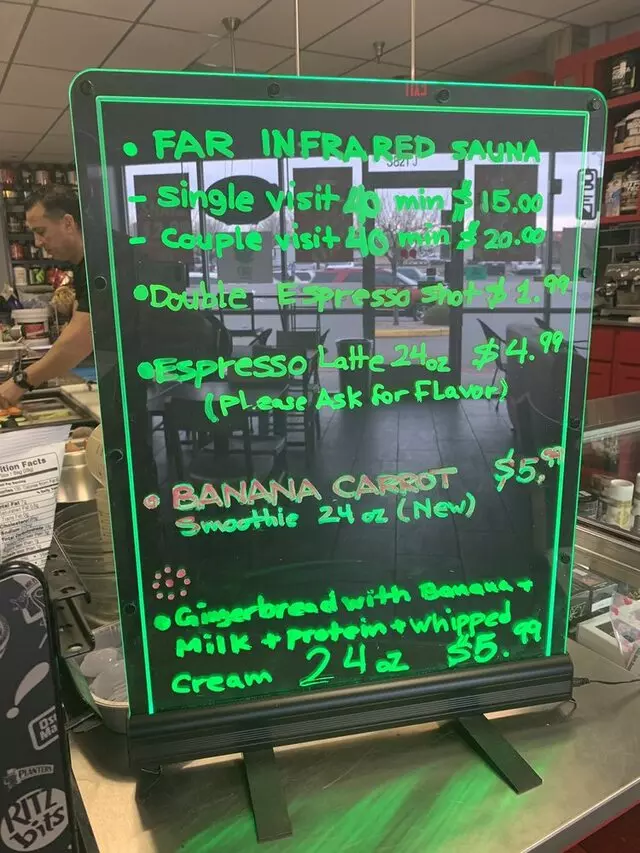 • FAR INFRARED SAUNA
- Single visit 40 min $15.00
- Couple visit 40 min $20.00
• Double Espresso shot $1.99
• Espresso Latte 24oz $4.99
(Please Ask for Flavor)
• BANANA CARROT $5.99
Smoothie 24 oz (New)
• Gingerbread with Banana +
Milk + protein + whipped
Cream 24oz $5.99
EXIT
tion Facts
PLANTERS
RITZ
bits